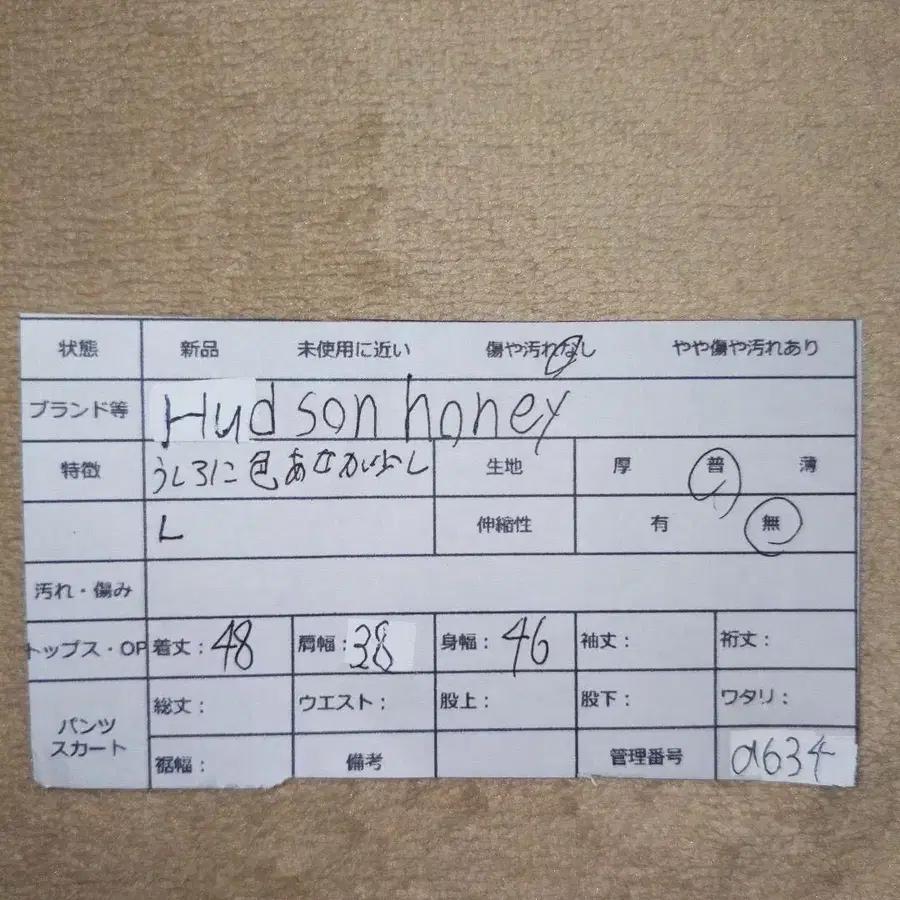 状態 新品 未使用に近い 傷や汚れなし やや傷や汚れあり
ブランド等 Hudson honey
特徴 うしろに色あせ少し 生地 厚 普 薄
L 伸縮性 有 無
汚れ・傷み
トップス・OP 着丈：48 肩幅：38 身幅：46 袖丈： 裄丈：
パンツ スカート 総丈： ウエスト： 股上： 股下： ワタリ：
裾幅： 備考 管理番号 a634